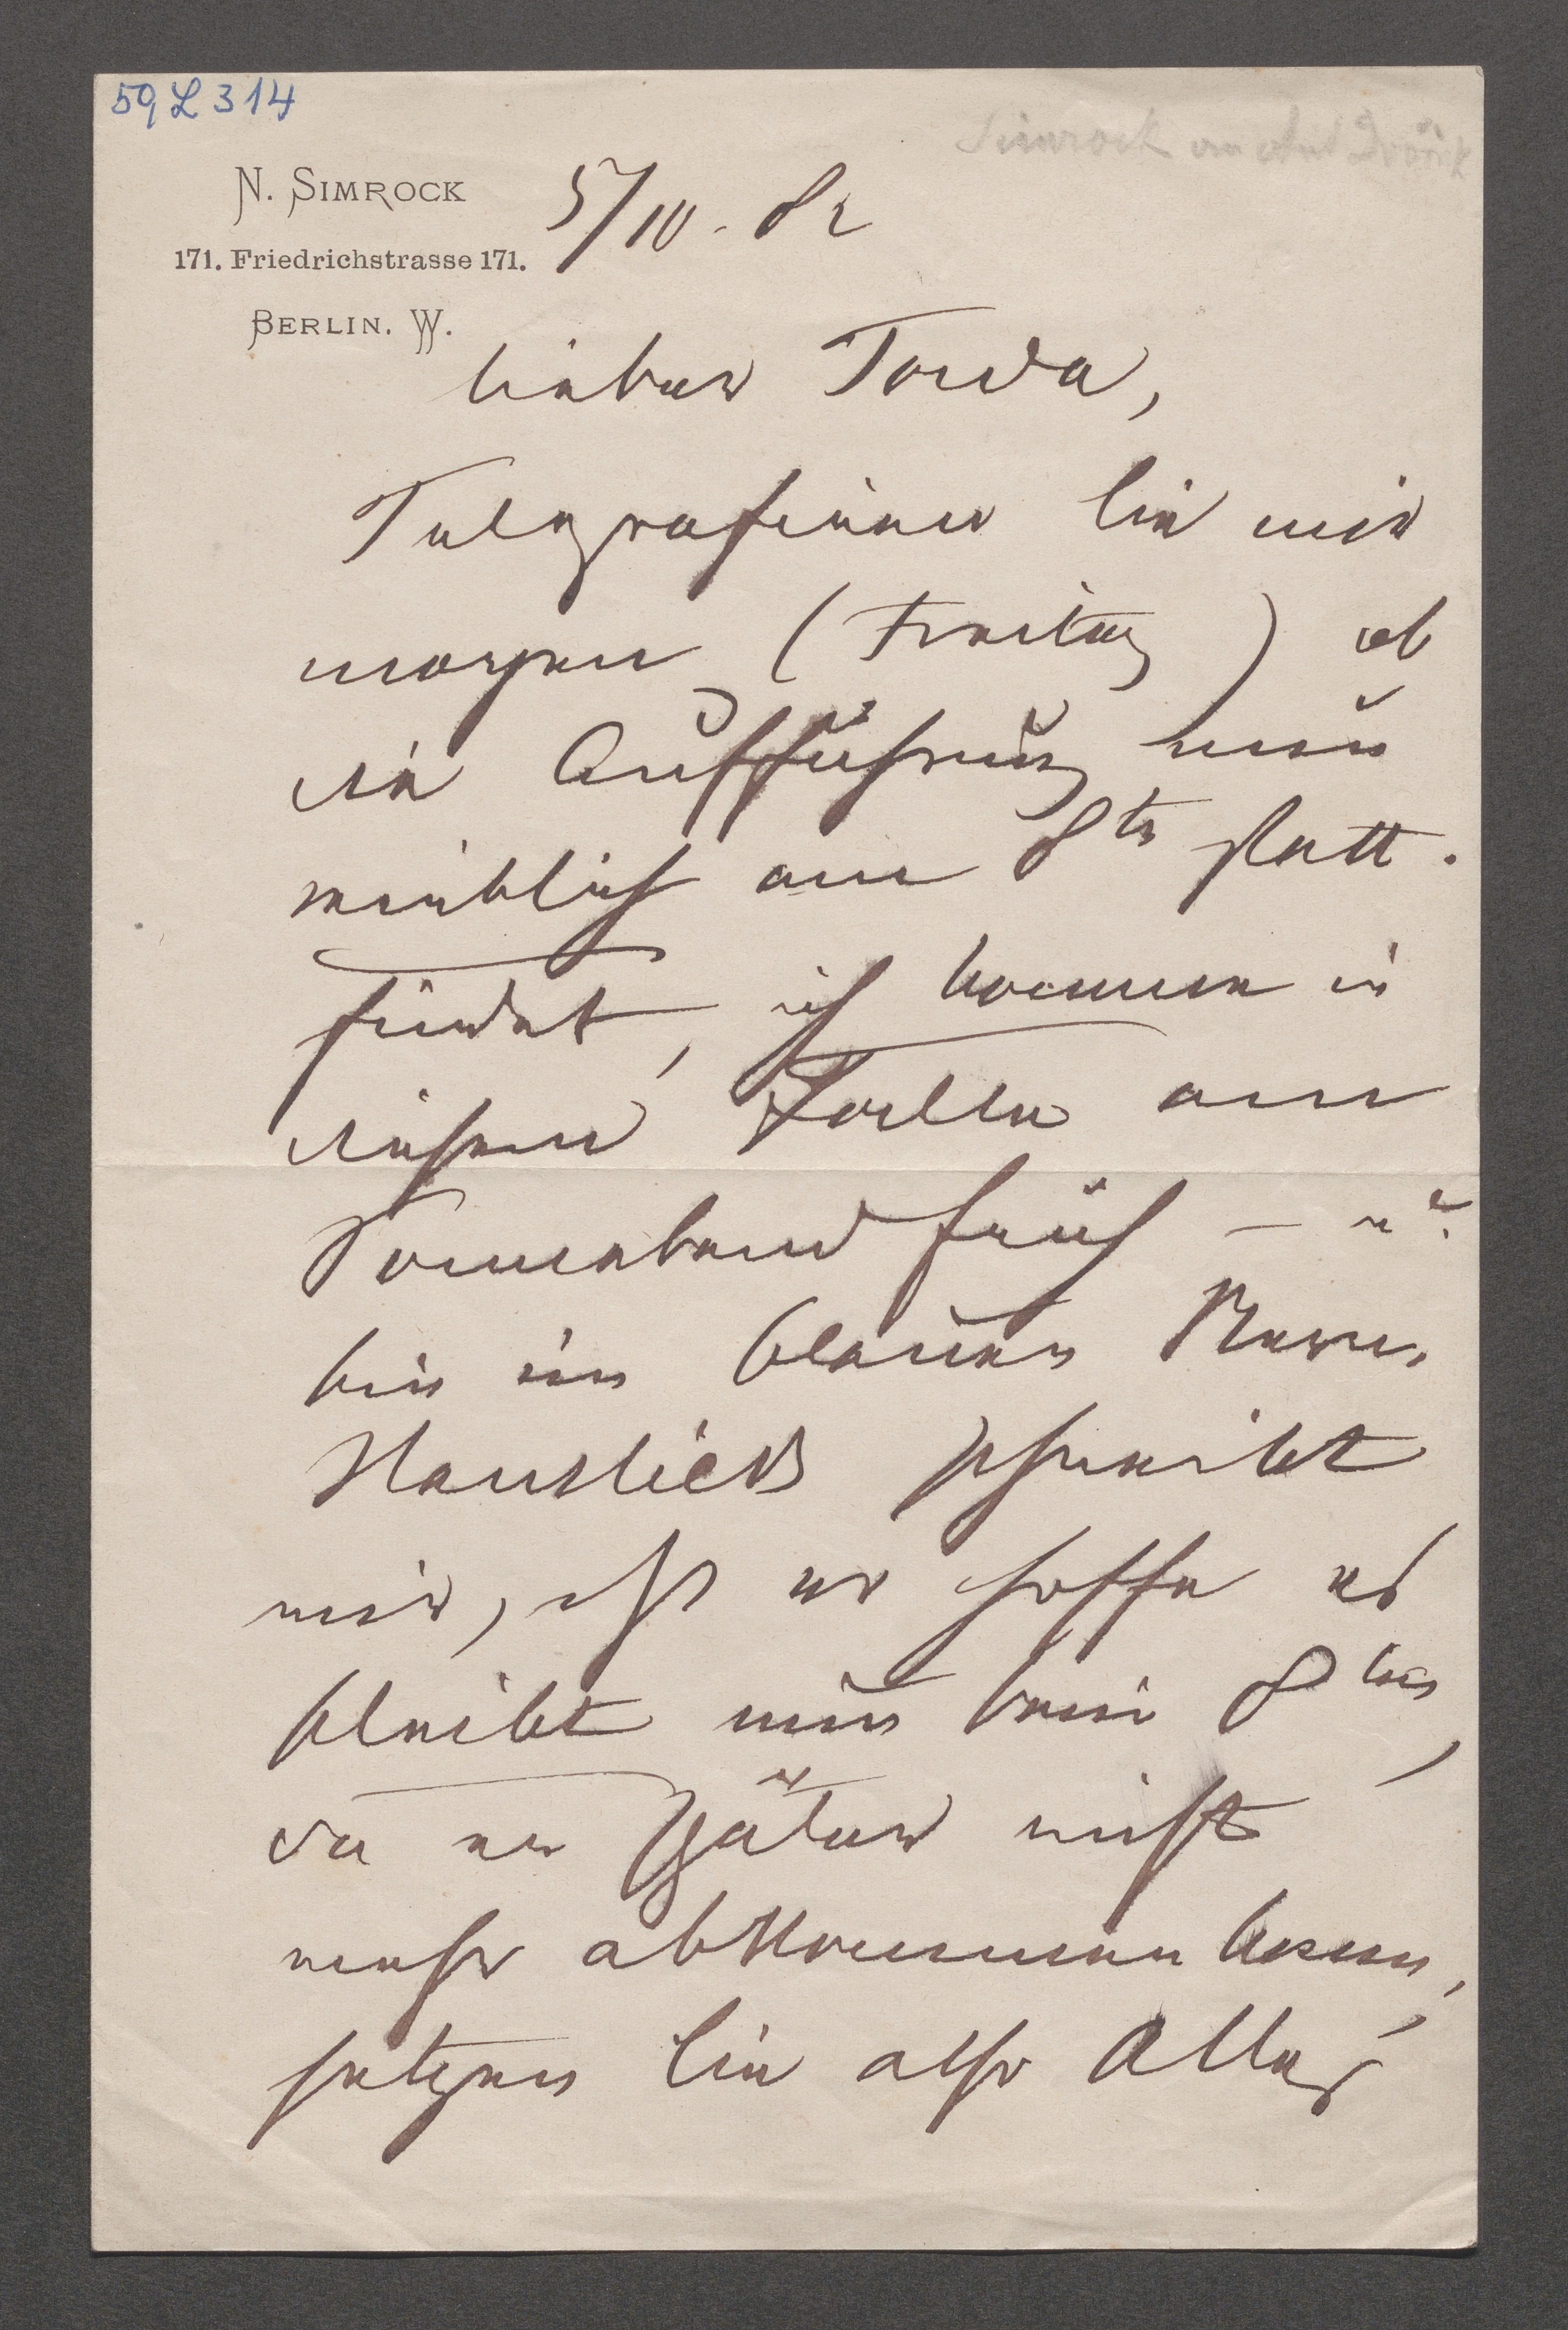 59 L 314
Simrock an Ant Dvořák
N. SIMROCK
171. Friedrichstrasse 171.
BERLIN. W.
5/10. 82
lieber Tonda,
Telegrafieren Sie mir
morgen (Freitag) ob
die Aufführung nun
wirklich am 8te statt.
findet, ich komme in
diesem Falle am
Sonnabend früh – u.
bin im blauen Stern.
Hanslick schreibt
mir, daß er hoffe es
bleibt nun beim 8ten,
da er später nicht
mehr abkommen kann,
setzen Sie also Alles